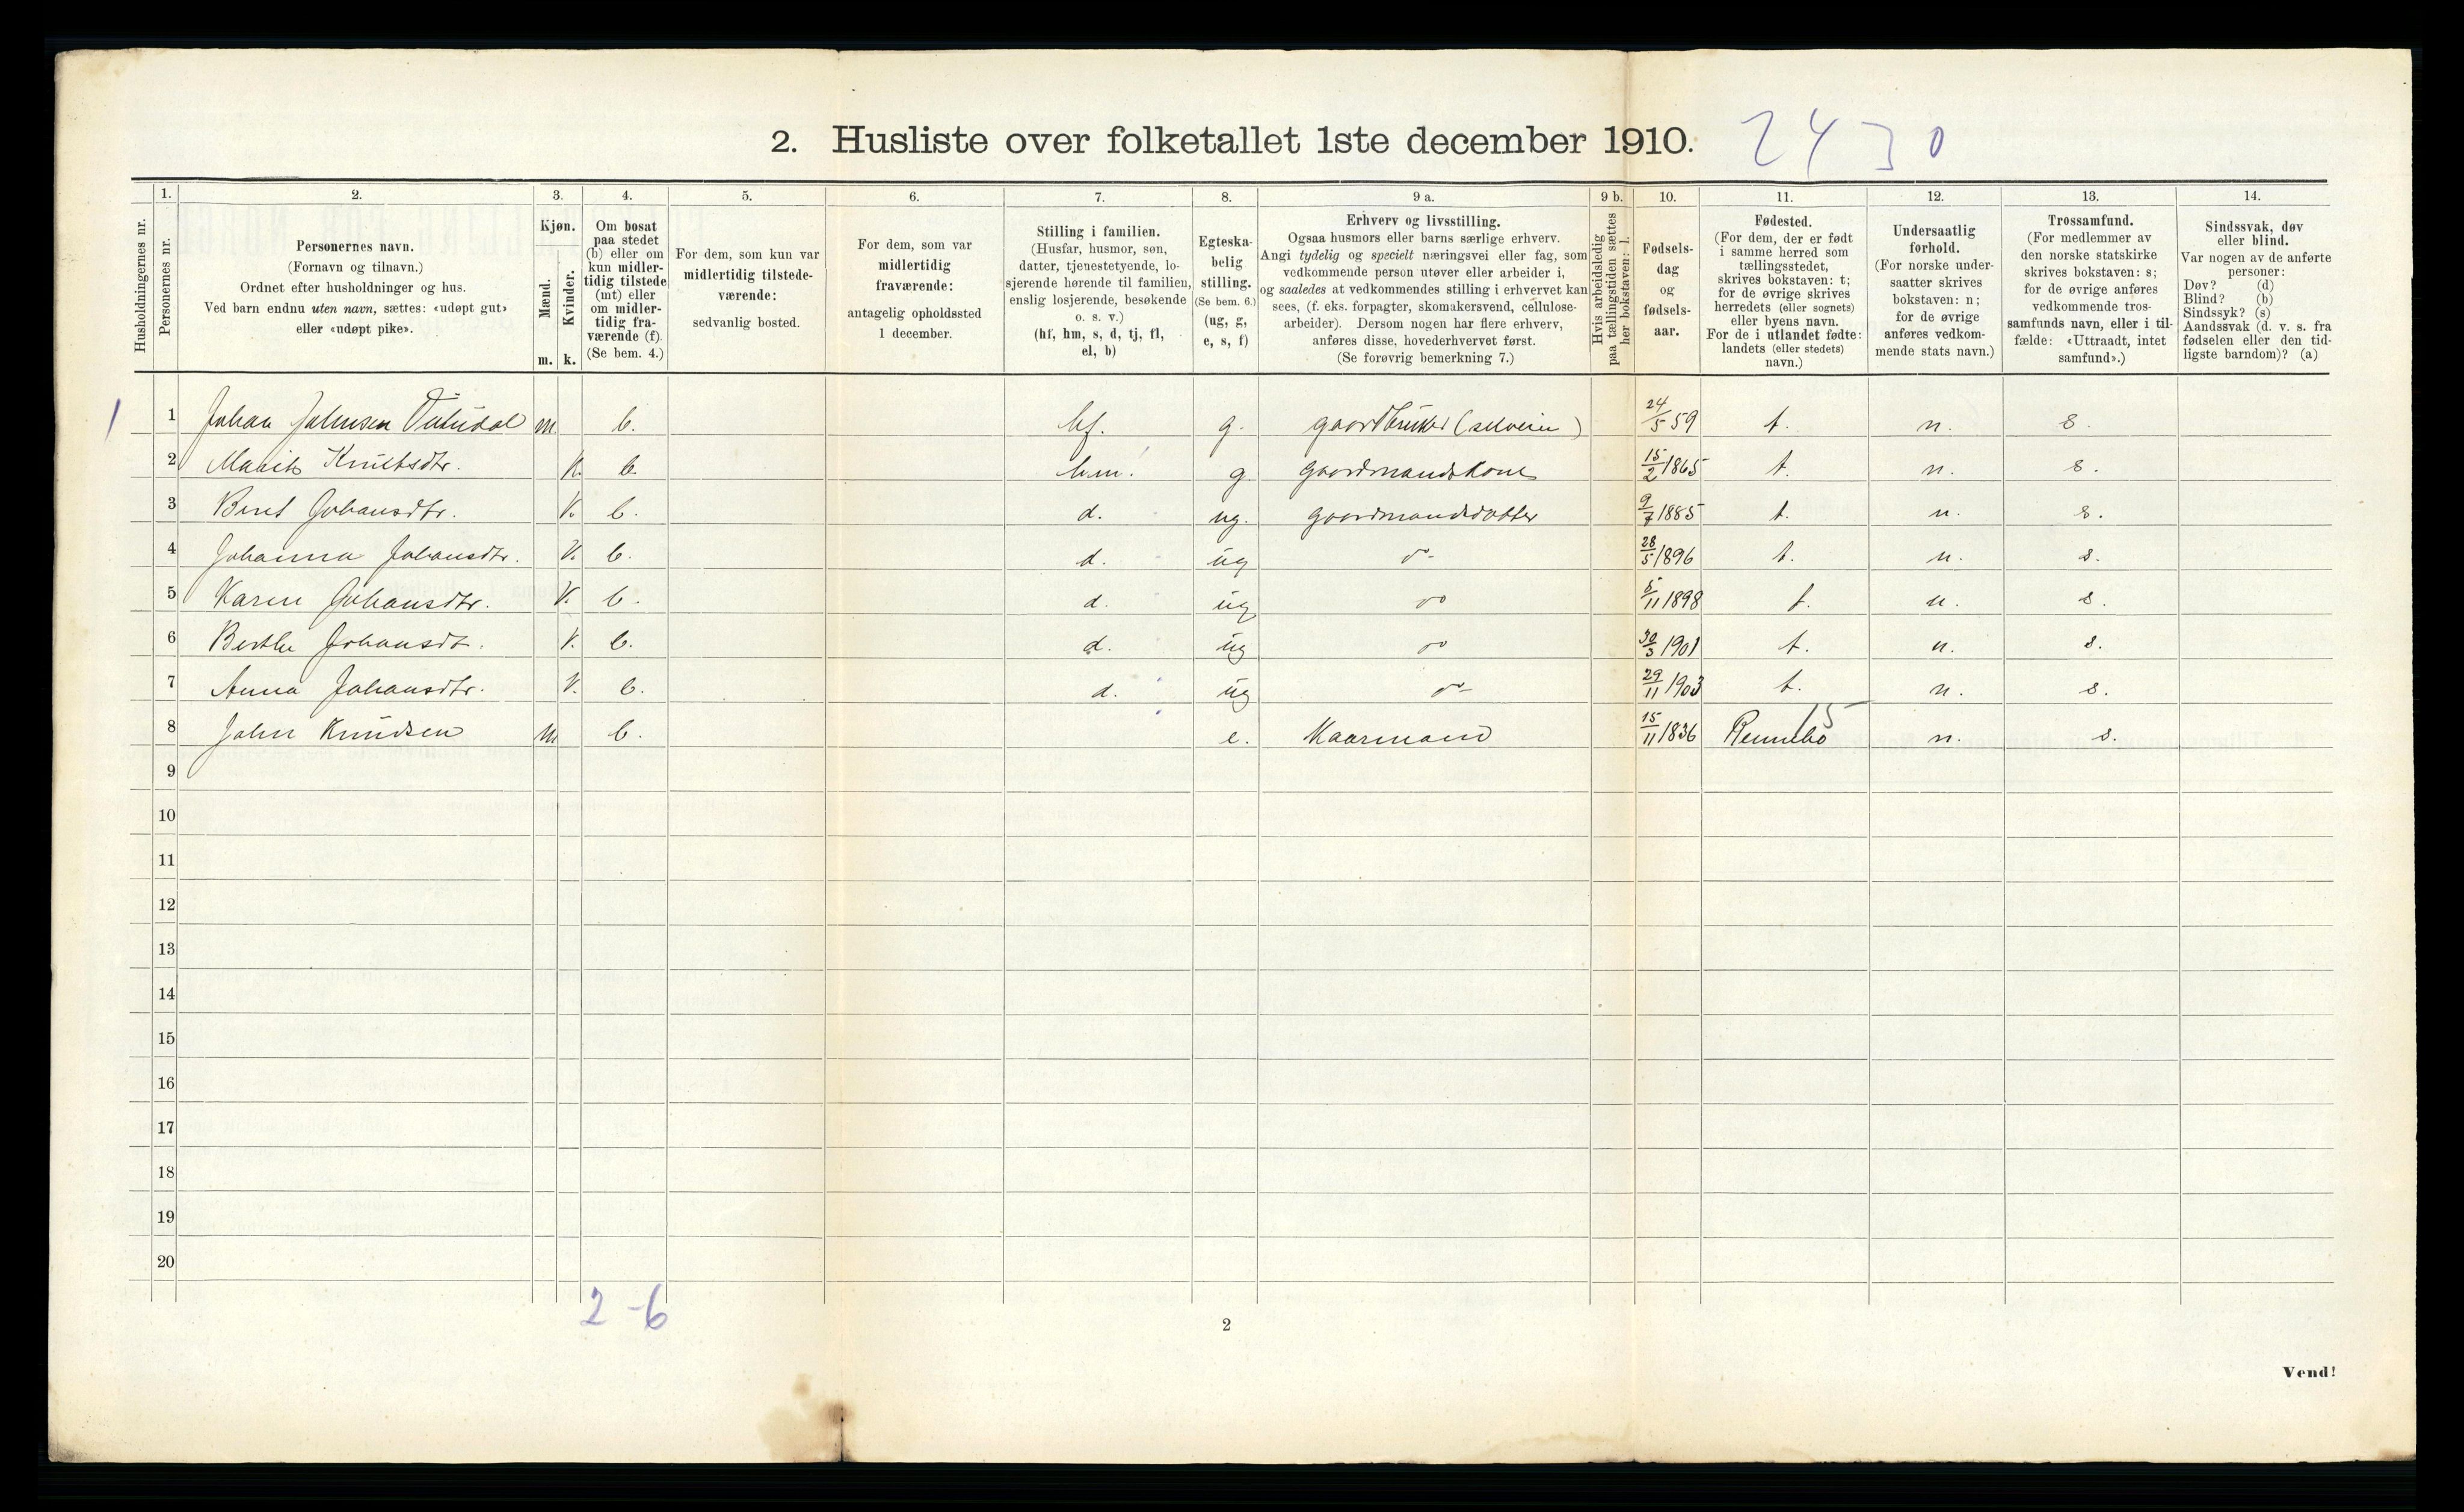 2. Husliste over folketallet 1ste december 1910. 2430
Husholdningernes nr.
1.
Personernes nr.
2.
Personernes navn.
(Fornavn og tilnavn.)
Ordnet efter husholdninger og hus.
Ved barn endnu uten navn, sættes: «udøpt gut»
eller «udøpt pike».
3.
Kjøn.
Mænd.
m.
Kvinder.
k.
4.
Om bosat
paa stedet
(b) eller om
kun midler-
tidig tilstede
(mt) eller
om midler-
tidig fra-
værende (f).
(Se bem. 4.)
5.
For dem, som kun var
midlertidig tilstede-
værende:
sedvanlig bosted.
6.
For dem, som var
midlertidig
fraværende:
antagelig opholdssted
1 december.
7.
Stilling i familien.
(Husfar, husmor, søn,
datter, tjenestetyende, lo-
sjerende hørende til familien,
enslig losjerende, besøkende
o. s. v.)
(hf, hm, s, d, tj, fl,
el, b)
8.
Egteska-
belig
stilling.
(Se bem. 6.)
(ug, g,
e, s, f)
9 a.
Erhverv og livsstilling.
Ogsaa husmors eller barns særlige erhverv.
Angi tydelig og specielt næringsvei eller fag, som
vedkommende person utøver eller arbeider i,
og saaledes at vedkommendes stilling i erhvervet kan
sees, (f. eks. forpagter, skomakersvend, cellulose-
arbeider). Dersom nogen har flere erhverv,
anføres disse, hovederhvervet først.
(Se forøvrig bemerkning 7.)
9 b.
Hvis arbeidsledig
paa tællingstiden sættes
her bokstaven: l.
10.
Fødsels-
dag
og
fødsels-
aar.
11.
Fødested.
(For dem, der er født
i samme herred som
tællingsstedet,
skrives bokstaven: t;
for de øvrige skrives
herredets (eller sognets)
eller byens navn.
For de i utlandet fødte:
landets (eller stedets)
navn.)
12.
Undersaatlig
forhold.
(For norske under-
saatter skrives
bokstaven: n;
for de øvrige
anføres vedkom-
mende stats navn.)
13.
Trossamfund.
(For medlemmer av
den norske statskirke
skrives bokstaven: s;
for de øvrige anføres
vedkommende tros-
samfunds navn, eller i til-
fælde: «Uttraadt, intet
samfund».)
14.
Sindssvak, døv
eller blind.
Var nogen av de anførte
personer:
Døv? (d)
Blind? (b)
Sindssyk? (s)
Aandssvak (d. v. s. fra
fødselen eller den tid-
ligste barndom)? (a)
1 1 Johan Johnsen m b. hf. g. gaardbruker (selveier) 24/5 59 t. n. s.
2 Marit Knutsdtr. k. b. hm. g gaardmandskone 15/2 1865 t. n. s.
3 Berit Johansdtr. k. b. d. ug. gaardmandsdatter 9/7 1885 t. n. s.
4 Johanna Johansdtr. k. b. d. ug do 28/5 1896 t. n. s.
5 Karen Johansdtr. k. b. d. ug do 5/11 1898 t. n. s.
6 Berthe Johansdt. k. b. d. ug do 30/3 1901 t. n. s.
7 Anna Johansdtr. k. b. d. ug do 29/11 1903 t. n. s.
8 John Knudsen m b. e. Kaarmand 15/11 1836 Rennebo 15 n. s.
9
10
11
12
13
14
15
16
17
18
19
20
2-6
2
Vend!